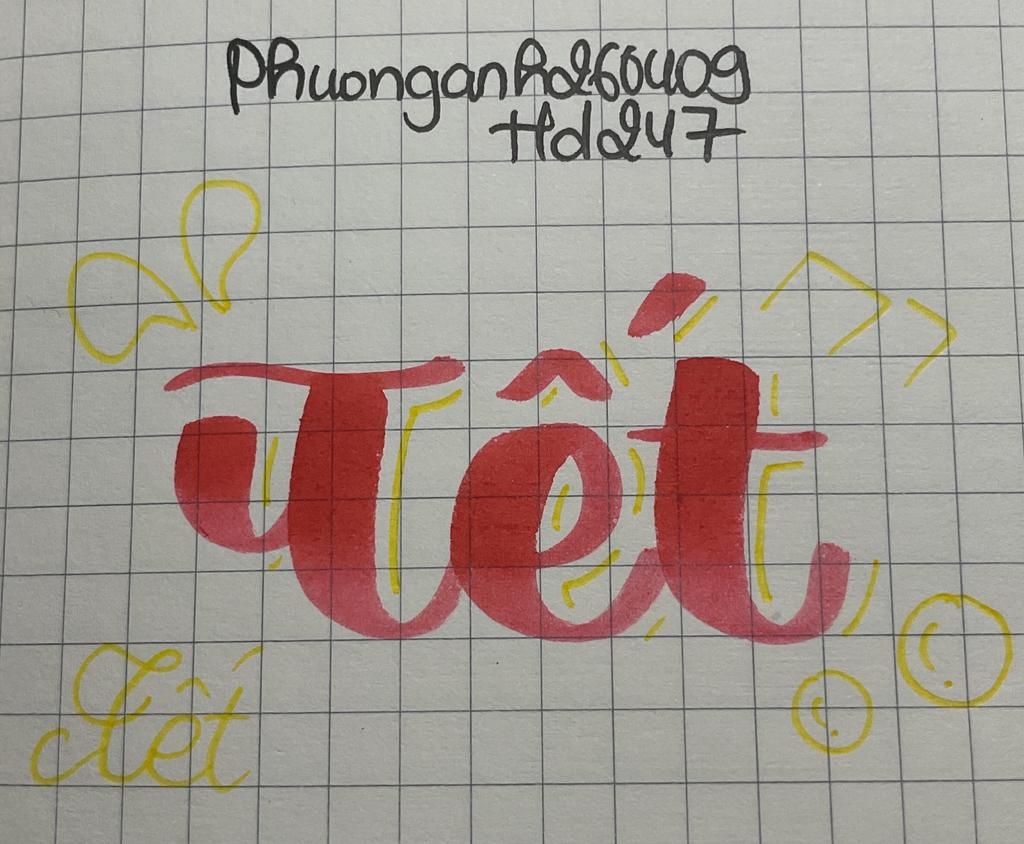 phuonganhd260409
Hd247
Tết
Tết